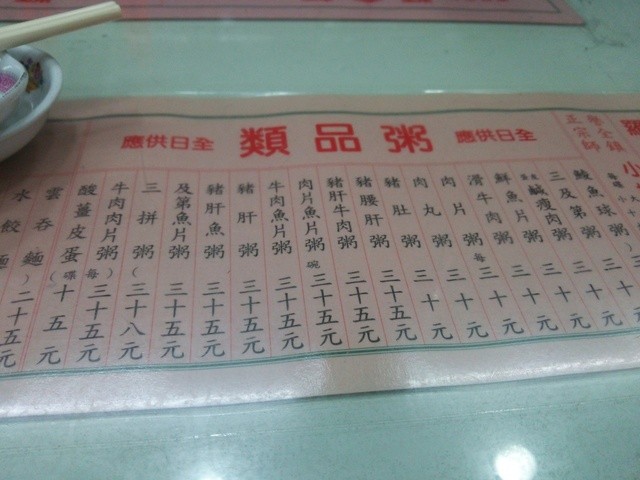 粥品類
全日供應
全日供應
正宗師
鯪魚球粥
三及第粥
鹹瘦肉粥 三十元
鮮魚片粥 三十元
滑牛肉粥 每 三十元
肉片粥 三十元
肉丸粥 三十元
豬肚粥 三十五元
豬腰肝粥 三十五元
豬肝牛肉粥 三十五元
肉片魚片粥 碗 三十五元
牛肉魚片粥 三十五元
豬肝粥 三十五元
豬肝魚粥 三十五元
及第魚片粥 三十五元
三拼粥( 三十八元
牛肉肉片粥)每 三十五元
酸薑皮蛋(碟 十五元
雲吞麵)
水餃麵 二十五元